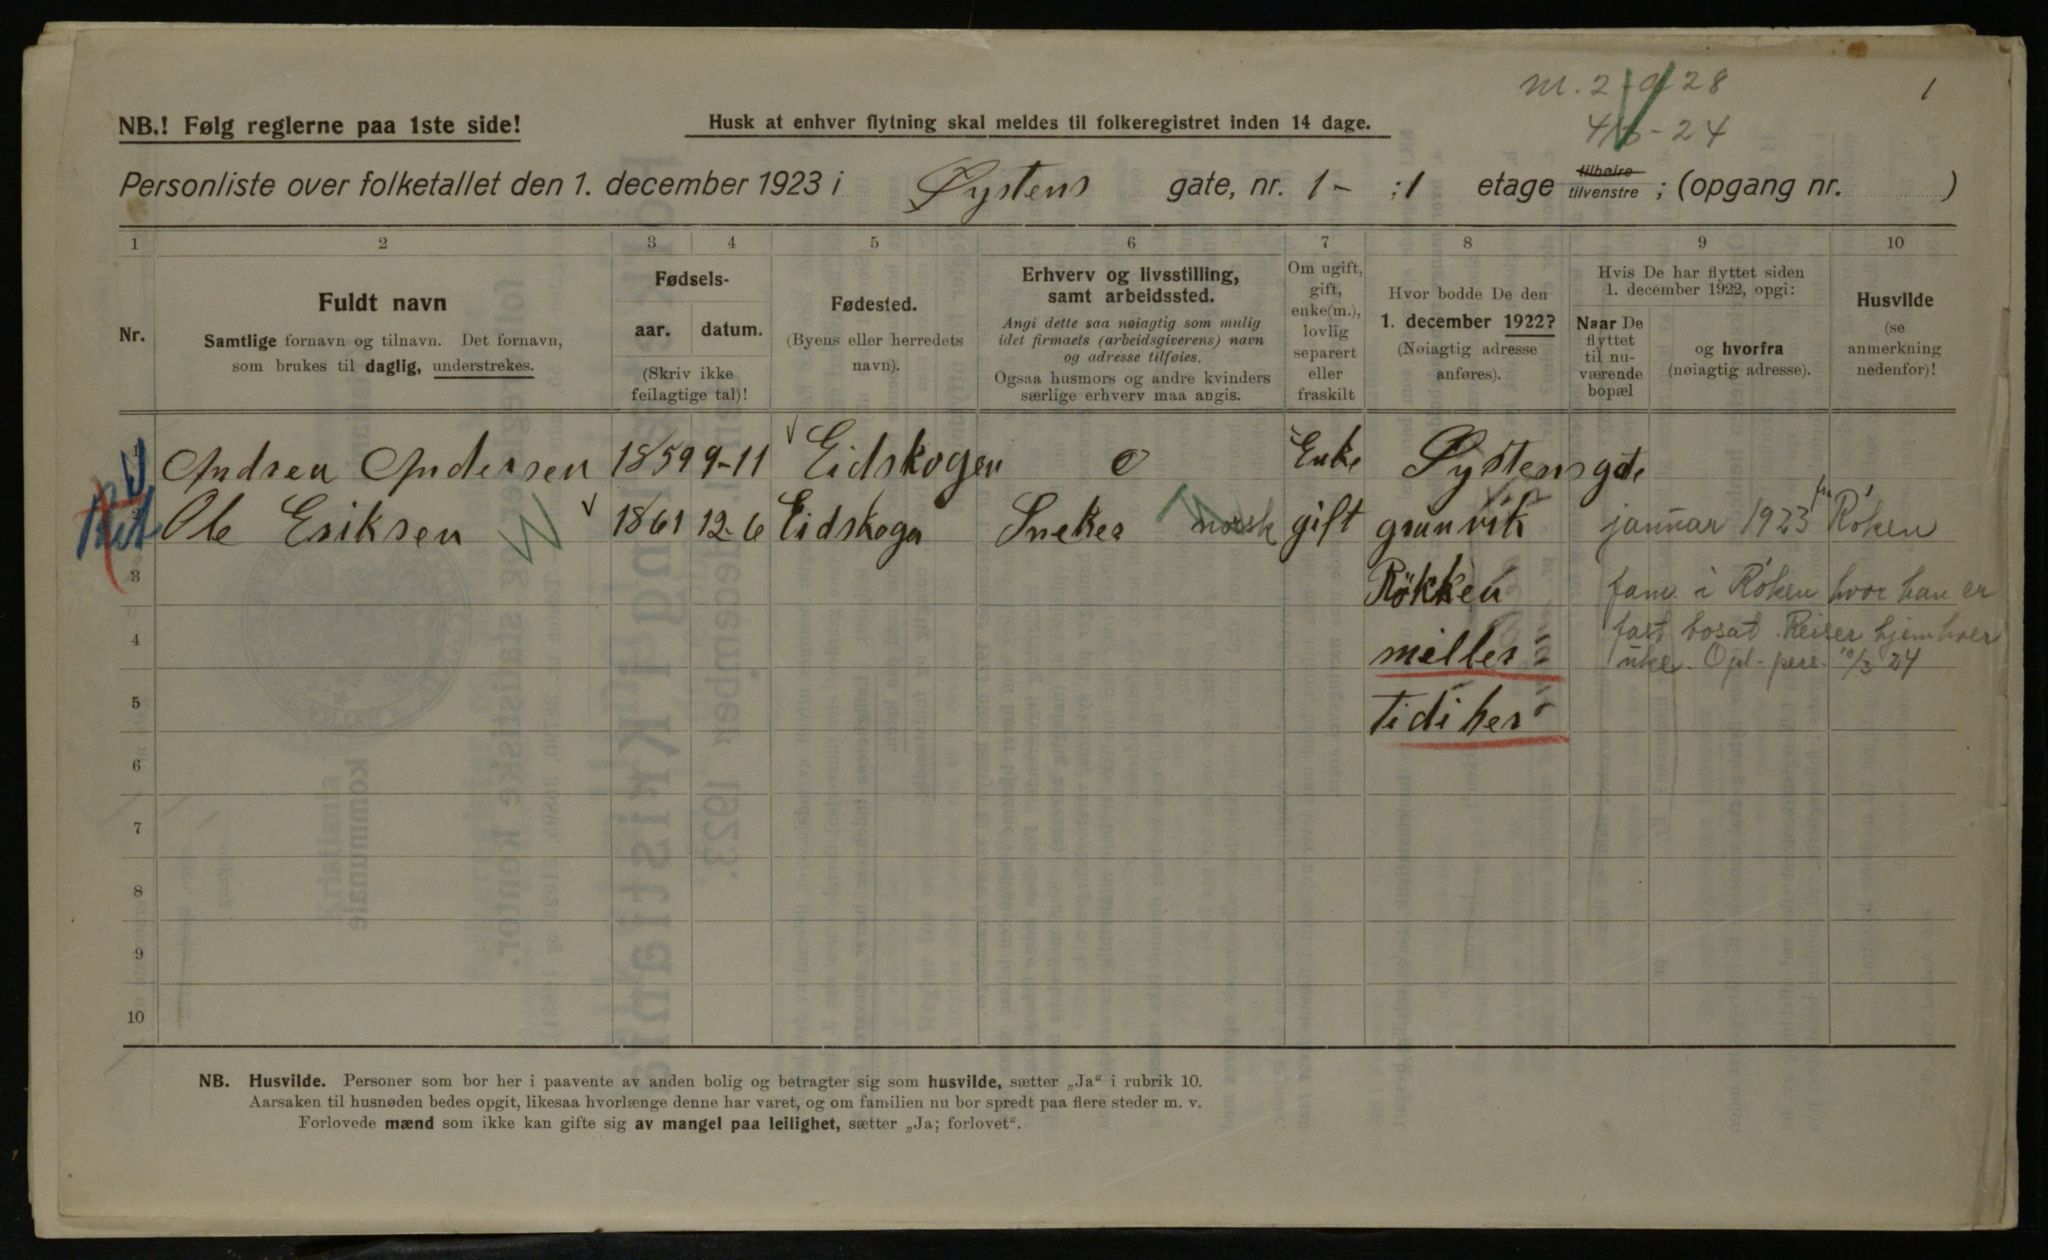 m. 2-9 28
1
4/3-24
NB.! Følg reglerne paa 1ste side!
Husk at enhver flytning skal meldes til folkeregistret inden 14 dage.
Personliste over folketallet den 1. december 1923 i Øystens gate, nr. 1- :1 etage tilhøire tilvenstre ; (opgang nr. )
1 2 3 4 5 6 7 8 9 10
Nr.
Fuldt navn
Samtlige fornavn og tilnavn. Det fornavn,
som brukes til daglig, understrekes.
Fødsels-
aar. datum.
(Skriv ikke
feilagtige tal)!
Fødested.
(Byens eller herredets
navn).
Erhverv og livsstilling,
samt arbeidssted.
Angi dette saa nøiagtig som mulig
idet firmaets (arbeidsgiverens) navn
og adresse tilføies.
Ogsaa husmors og andre kvinders
særlige erhverv maa angis.
Om ugift,
gift,
enke(m.),
lovlig
separert
eller
fraskilt
Hvor bodde De den
1. december 1922?
(Nøiagtig adresse
anføres).
Hvis De har flyttet siden
1. december 1922, opgi:
Naar De
flyttet
til nu-
værende
bopæl
og hvorfra
(nøiagtig adresse).
Husvilde
(se
anmerkning
nedenfor)!
1 Andrea Andersen 1859 9-11 Eidskogen 0 Enke Øystensgate
2 Ole Eriksen 1861 12-6 Eidskogn Sneker norsk gift granvik januar 1923 fra Røken
3 Røkken fam. i Røken hvor han er
fast bosat. Reiser hjem hver
4 melles uke. Opl. pers. 10/3 24
5 tidiher
6
7
8
9
10
NB. Husvilde. Personer som bor her i paavente av anden bolig og betragter sig som husvilde, sætter „Ja“ i rubrik 10.
Aarsaken til husnøden bedes opgit, likesaa hvorlænge denne har varet, og om familien nu bor spredt paa flere steder m. v.
Forlovede mænd som ikke kan gifte sig av mangel paa leilighet, sætter „Ja; forlovet“.